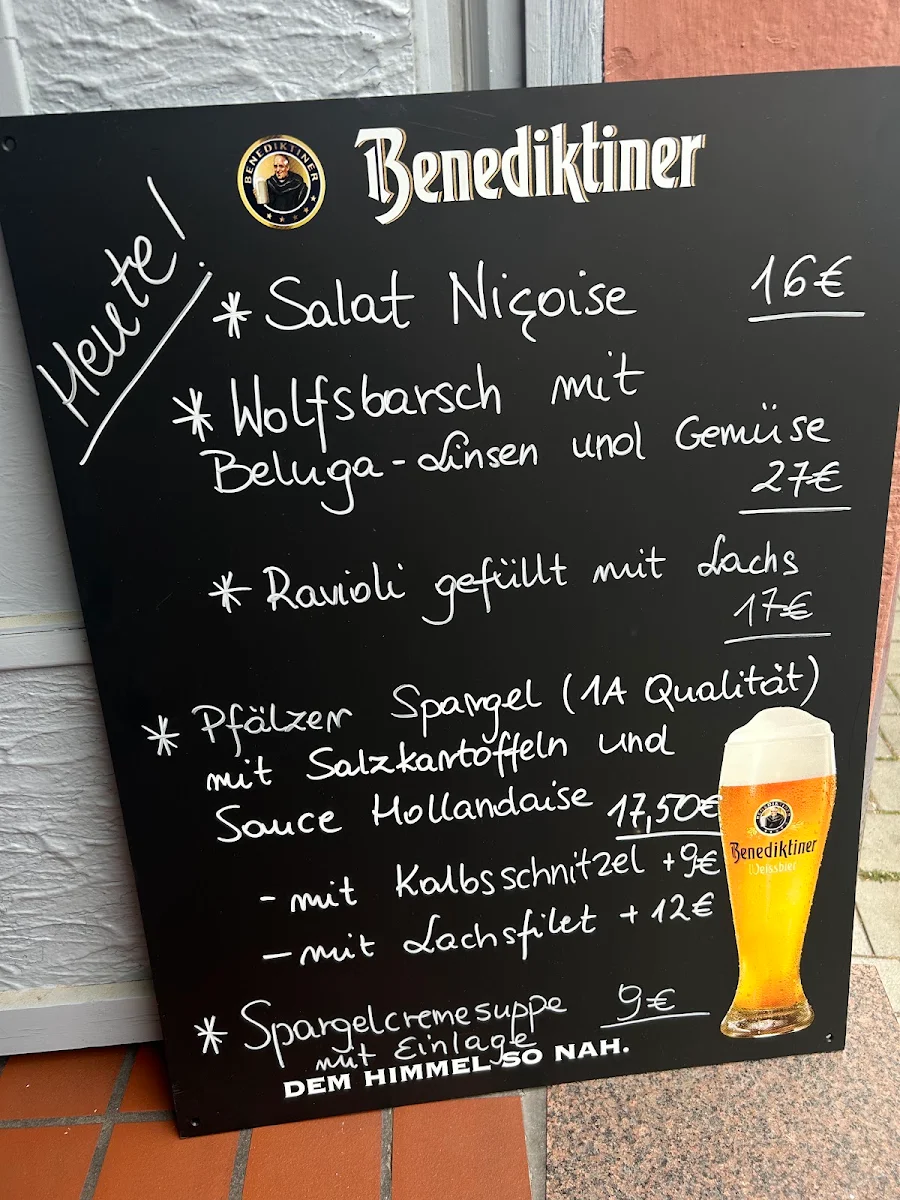 BENEDIKTINER
Benediktiner
Heute!
* Salat Niçoise 16€
* Wolfsbarsch mit
Beluga-Linsen und Gemüse
27€
* Ravioli gefüllt mit Lachs
17€
* Pfälzer Spargel (1A Qualität)
mit Salzkartoffeln und
Sauce Hollandaise 17,50€
- mit Kalbsschnitzel +9€
- mit Lachsfilet +12€
* Spargelcremesuppe 9€
mit Einlage
DEM HIMMEL SO NAH.
BENEDIKTINER
Benediktiner
Weissbier